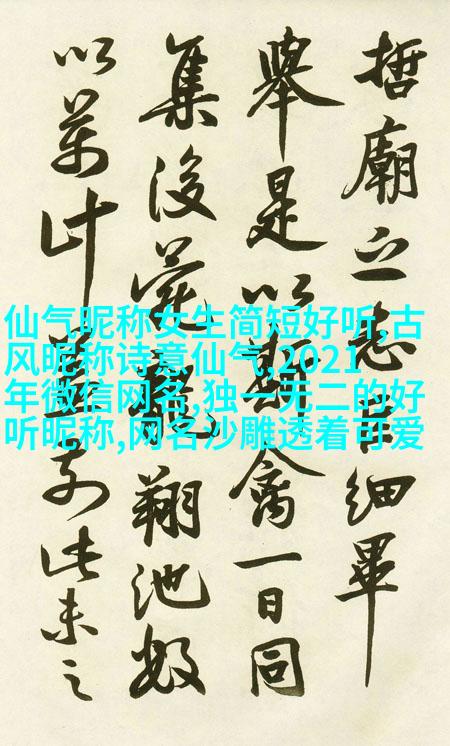 仙气昵称女生简短好听,古
风昵称诗意仙气,2021
年微信网名,独一无二的好
听昵称,网名沙雕透着可爱
哲廟之志細畢
舉是以禽一日同
集後翔池
以萬計前此未之